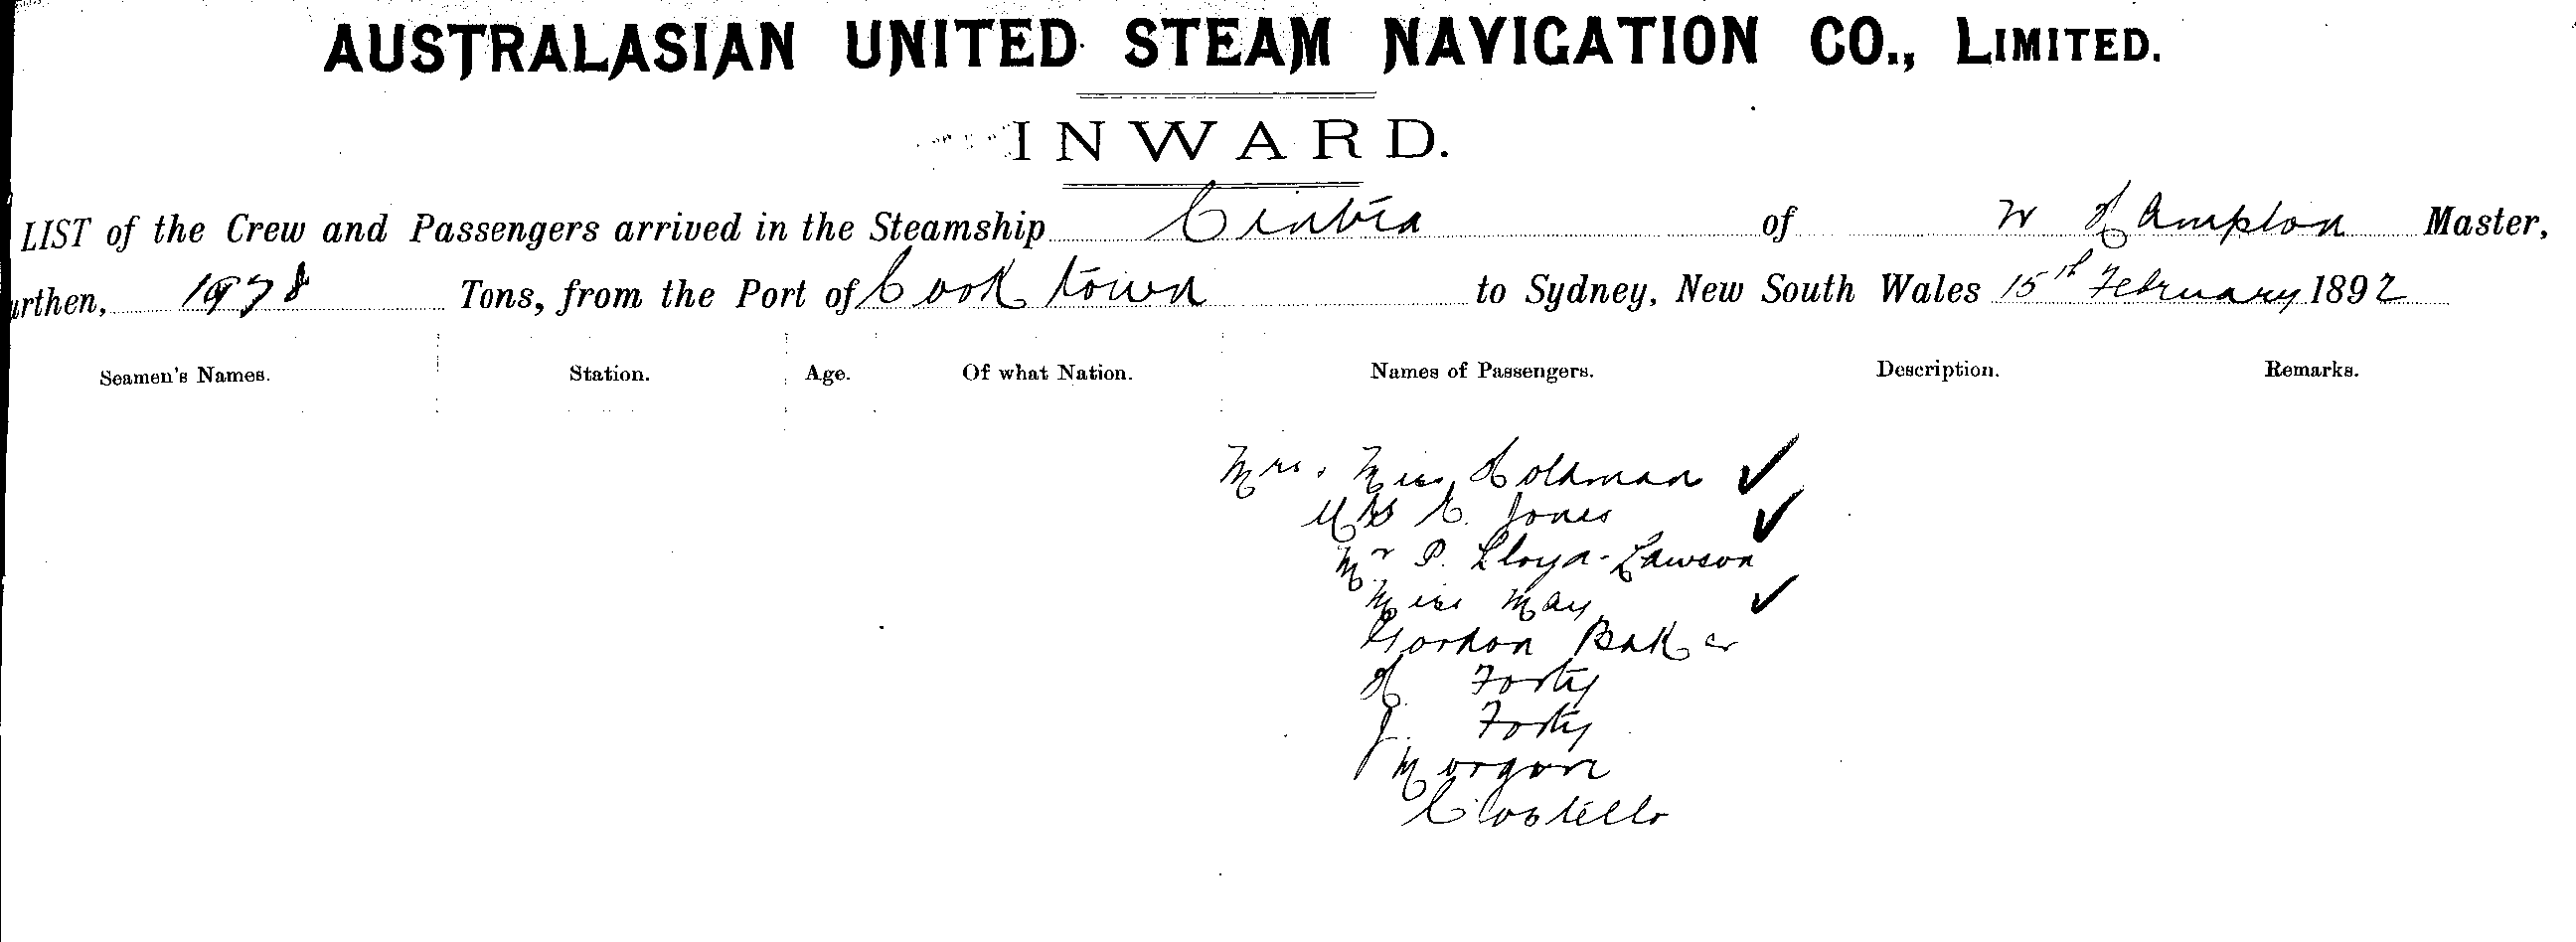 AUSTRALASIAN UNITED STEAM NAVIGATION CO., LIMITED.
INWARD.
LIST of the Crew and Passengers arrived in the Steamship Cintra of W Hampton Master,
urthen, 1978 Tons, from the Port of Cooktown to Sydney, New South Wales 15th February 1892
Seamen's Names. Station. Age. Of what Nation. Names of Passengers. Description. Remarks.
Mrs. Miss Holdman ✓
Mrs E. Jones ✓
Mr P. Lloyd-Lawson
Miss May ✓
Gordon Baker
H Forty
J. Forty
Morgan
Costello